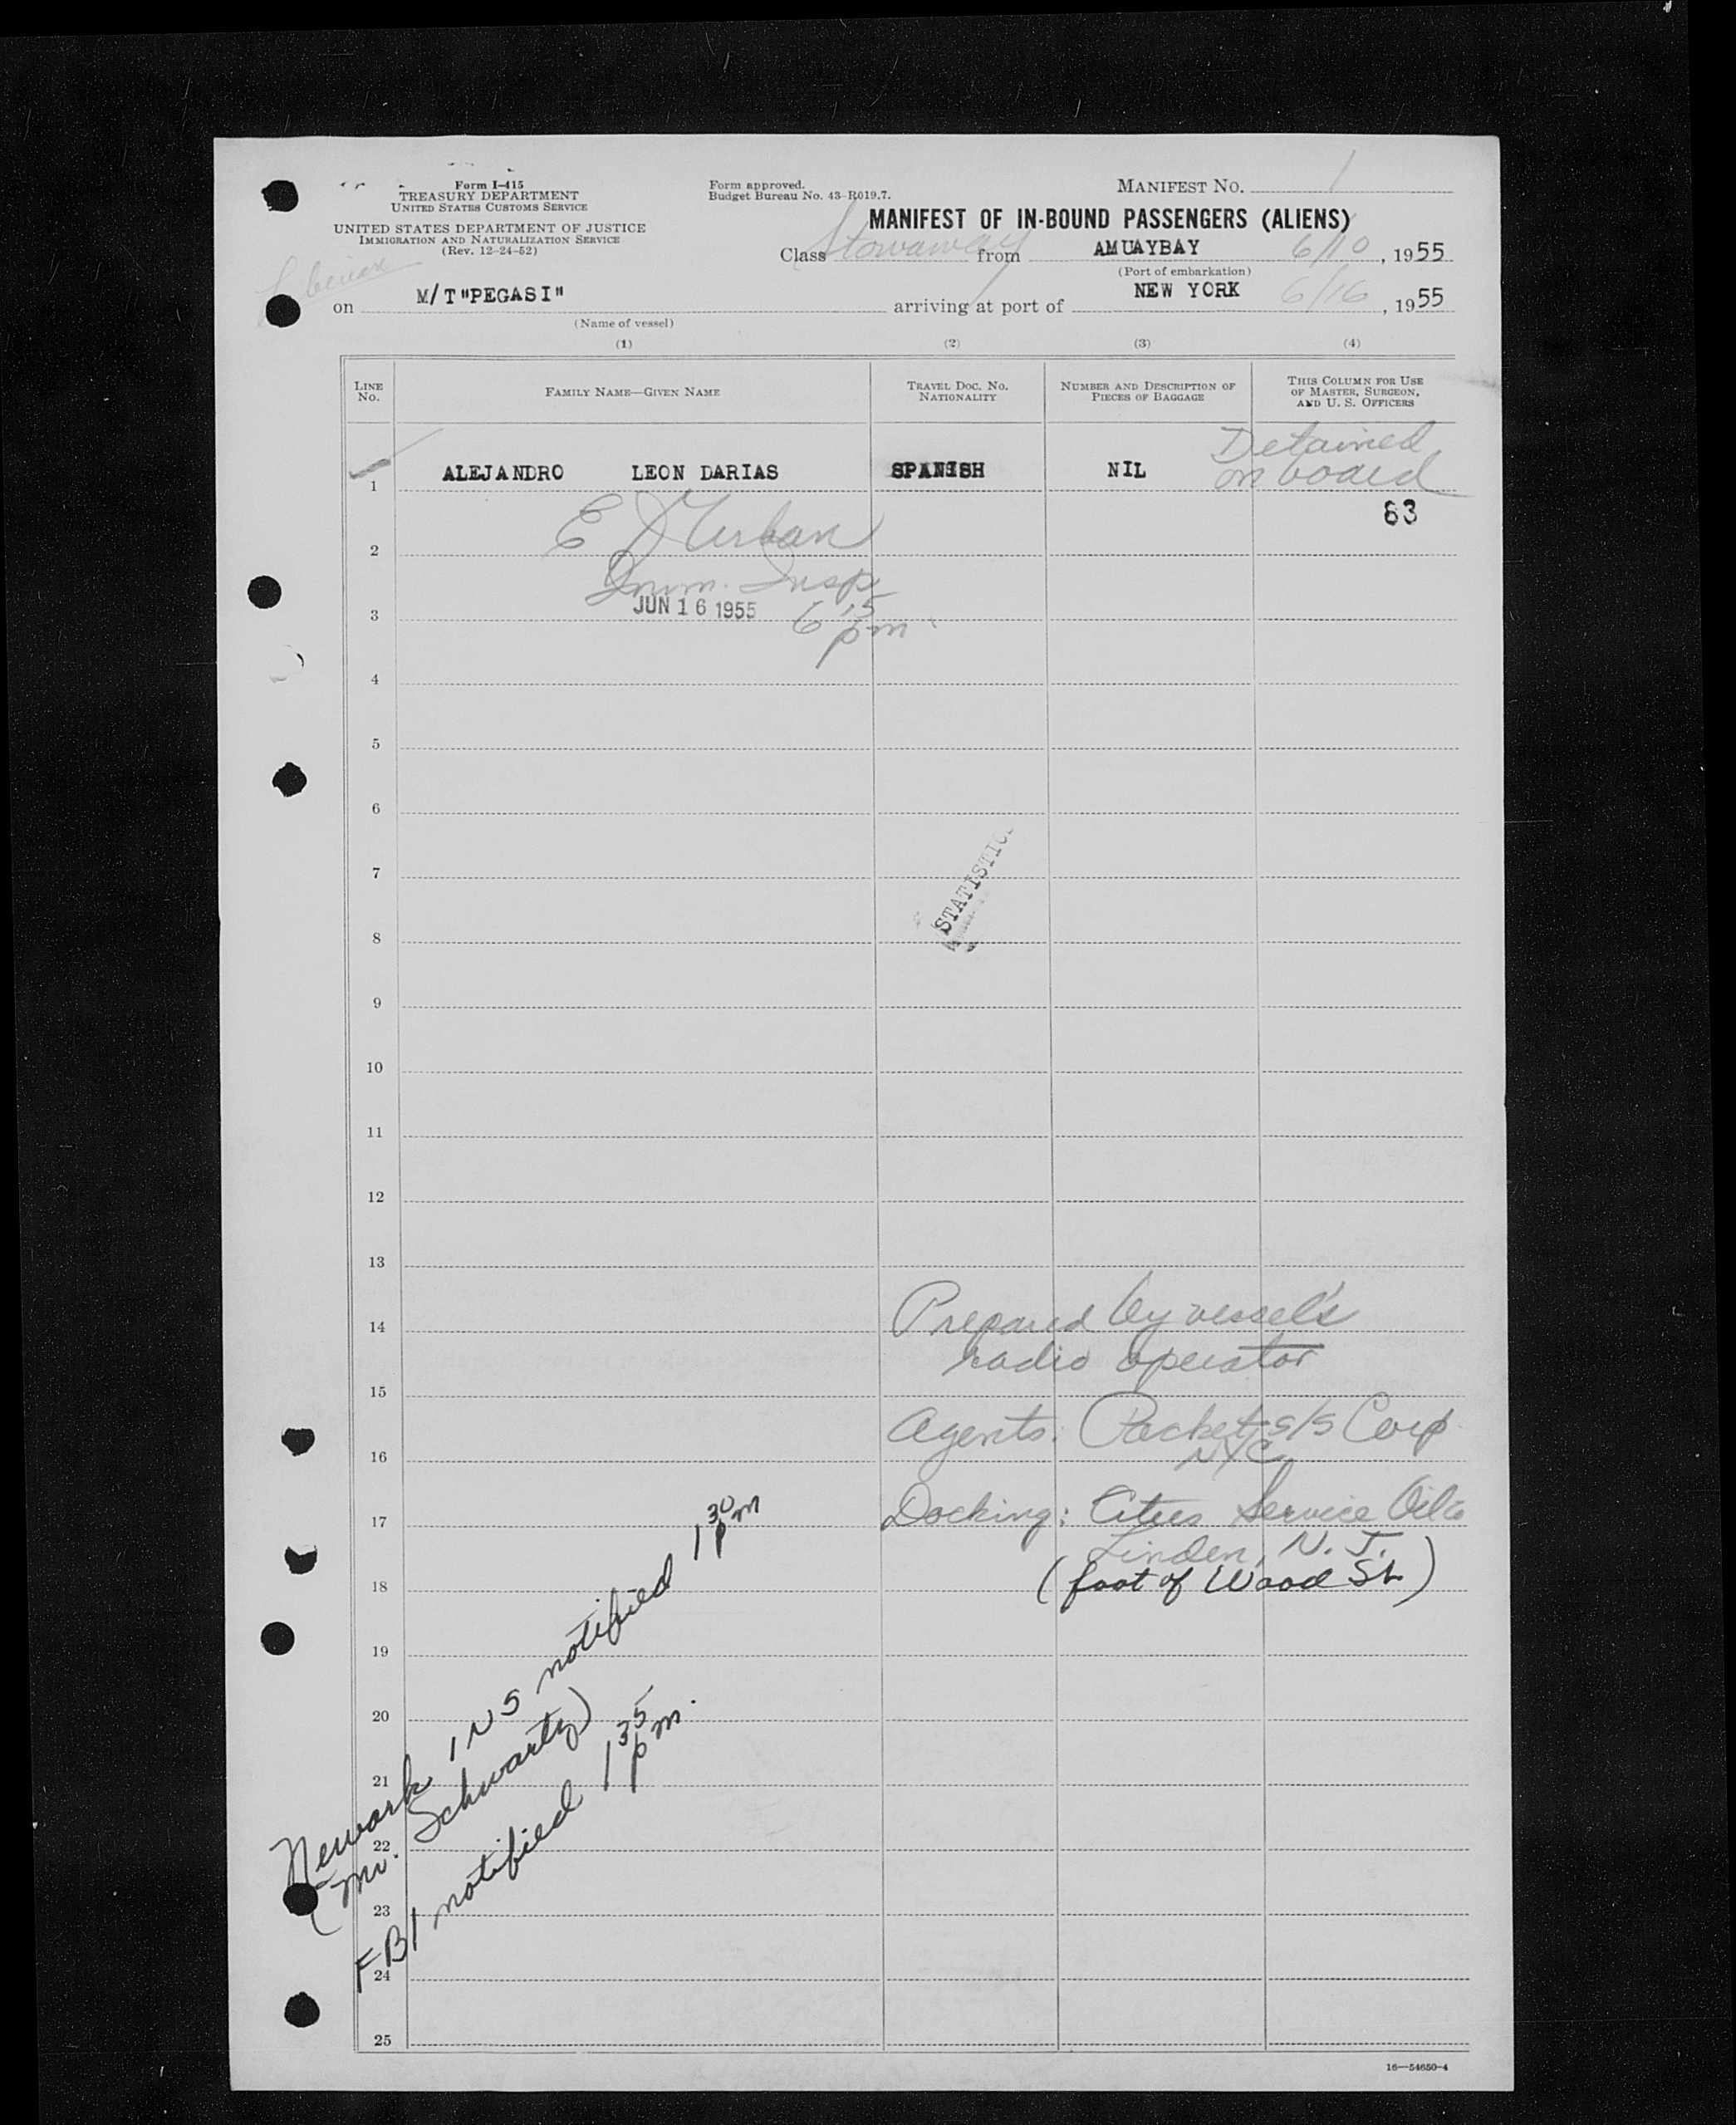 Form I-415
TREASURY DEPARTMENT
UNITED STATES CUSTOMS SERVICE
UNITED STATES DEPARTMENT OF JUSTICE
IMMIGRATION AND NATURALIZATION SERVICE
(Rev. 12-24-52)
Form approved.
Budget Bureau No. 43-R019.7.
MANIFEST NO. 1
MANIFEST OF IN-BOUND PASSENGERS (ALIENS)
Class Stowaway from AMUAYBAY 6/10, 1955
(Port of embarkation)
on M/T"PEGASI" arriving at port of NEW YORK 6/16, 1955
(Name of vessel)
(1) (2) (3) (4)
LINE NO. FAMILY NAME—GIVEN NAME TRAVEL DOC. NO. NATIONALITY NUMBER AND DESCRIPTION OF PIECES OF BAGGAGE THIS COLUMN FOR USE OF MASTER, SURGEON, AND U. S. OFFICERS
Detained
1 ALEJANDRO LEON DARIAS SPANISH NIL on board
63
2 E J Urban
Imm. Insp
3 JUN 16 1955 6 15 pm
4
5
6
7
STATISTIC
8
9
10
11
12
13
14 Prepared by vessel's
radio operator
15
16 Agents: Packet s/s Corp
NYC
17 Docking: Cities Service Oil Co
Linden, N. J.
18 (foot of Wood St)
19
20
21
22
23
24
25
Newark INS notified 1 30 pm
(Mr. Schwartz)
FBI notified 1 35 pm.
16—54650-4